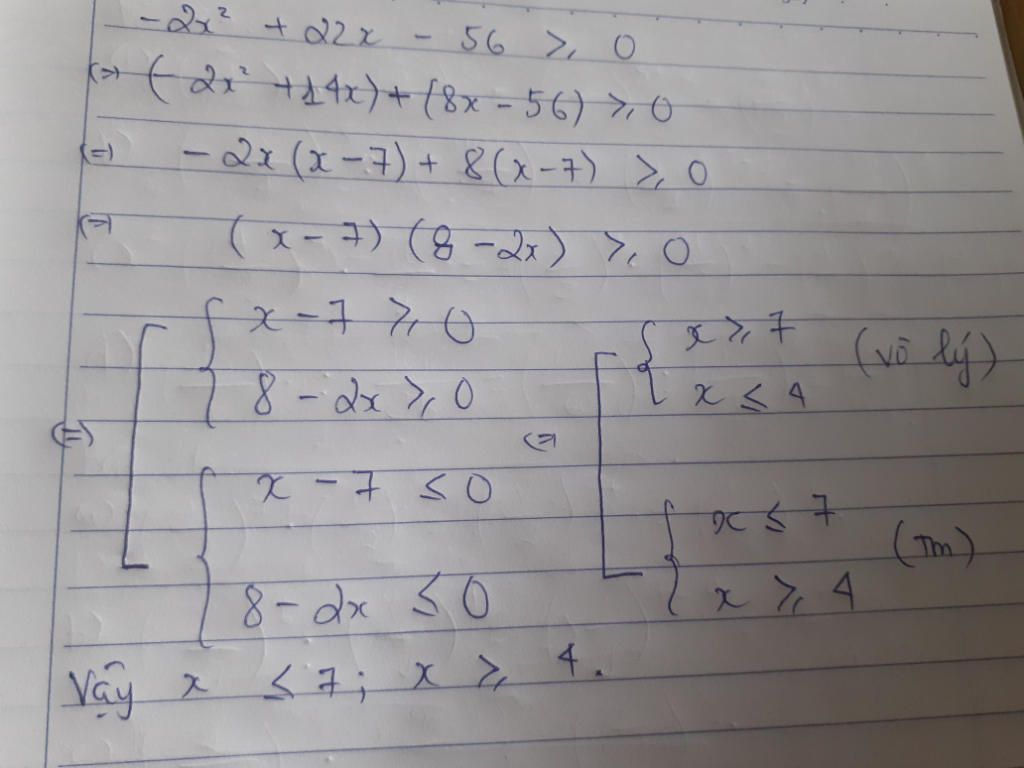 -2x² + 22x - 56 ≥ 0
(=) (-2x² + 14x) + (8x - 56) ≥ 0
(=) -2x(x - 7) + 8(x - 7) ≥ 0
(=) (x - 7)(8 - 2x) ≥ 0
(=) [ { x - 7 ≥ 0
8 - 2x ≥ 0
{ x - 7 ≤ 0
8 - 2x ≤ 0
(=) [ { x ≥ 7
x ≤ 4 (vô lý)
{ x ≤ 7
x ≥ 4 (Tm)
Vậy x ≤ 7; x ≥ 4.